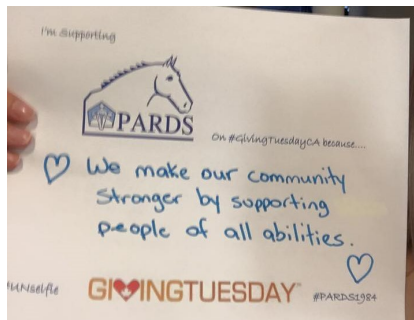 I'm @upporting
PARDS
On #GivingTuesdayCA because....
We make our community
Stronger by supporting
people of all abilities.
#UNselfie
GIVINGTUESDAY
#PARDS1984